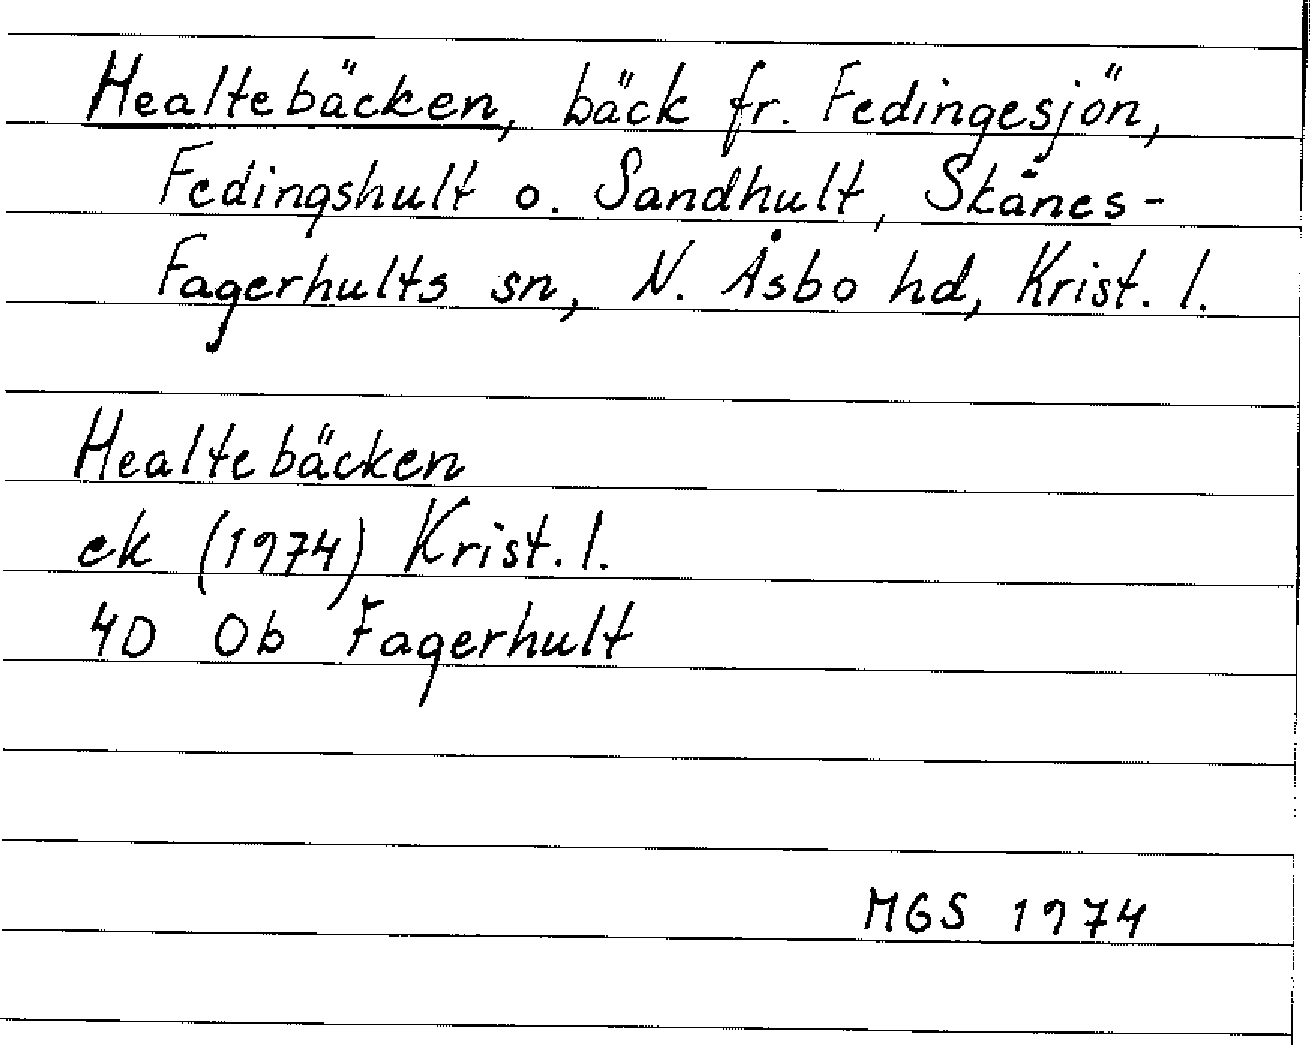 Healtebäcken, bäck fr. Fedingesjön,
Fedingshult o. Sandhult, Skånes-
Fagerhults sn, N. Åsbo hd, Krist. l.
Healtebäcken
ek (1974) Krist. l.
4D 0b Fagerhult
MGS 1974